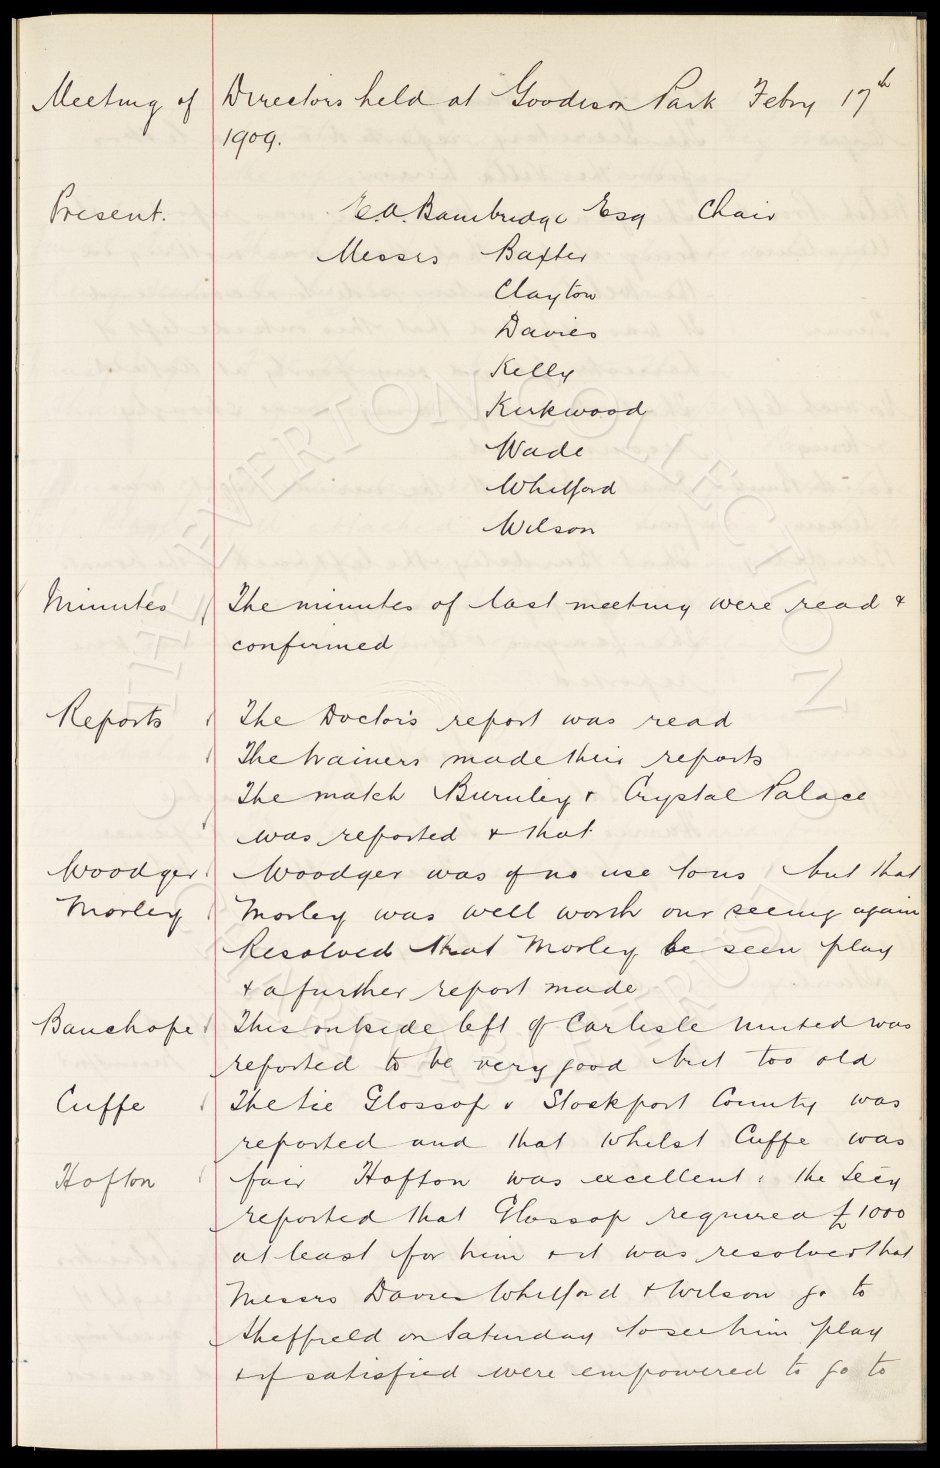 Meeting of Directors held at Goodison Park Febry 17th
1909.
Present. E.A. Bainbridge Esq Chair
Messrs Baxter
Clayton
Davies
Kelly
Kirkwood
Wade
Whitford
Wilson
Minutes The minutes of last meeting were read &
confirmed
Reports The Doctor's report was read
The trainers made their reports
The match Burnley v Crystal Palace
was reported & that
Woodger Woodger was of no use to us but that
Morley Morley was well worth our seeing again
Resolved that Morley be seen play
& a further report made
Bauchope This outside left of Carlisle United was
reported to be very good but too old
Cuffe The tie Glossop v Stockport County was
reported and that whilst Cuffe was
Hofton fair Hofton was excellent, the Secy
reported that Glossop required £1000
at least for him & it was resolved that
Messrs Davies Whitford & Wilson go to
Sheffield on Saturday to see him play
& if satisfied were empowered to go to
THE EVERTON COLLECTION